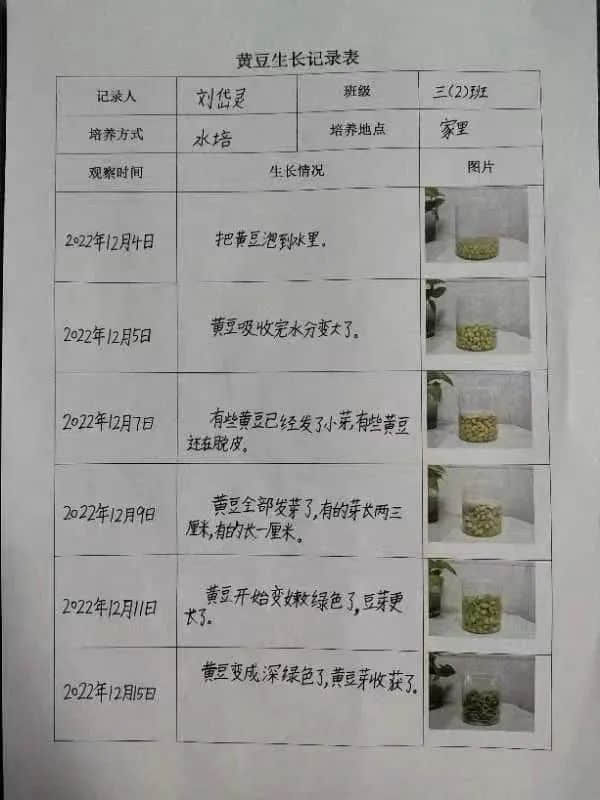 黄豆生长记录表
记录人 刘岱灵 班级 三(2)班
培养方式 水培 培养地点 家里
观察时间 生长情况 图片
2022年12月4日 把黄豆泡到水里。
2022年12月5日 黄豆吸收完水分变大了。
2022年12月7日 有些黄豆已经发了小芽,有些黄豆
还在脱皮。
2022年12月9日 黄豆全部发芽了,有的芽长两三
厘米,有的长一厘米。
2022年12月11日 黄豆开始变嫩绿色了,豆芽更
长了。
2022年12月15日 黄豆变成深绿色了,黄豆芽收获了。